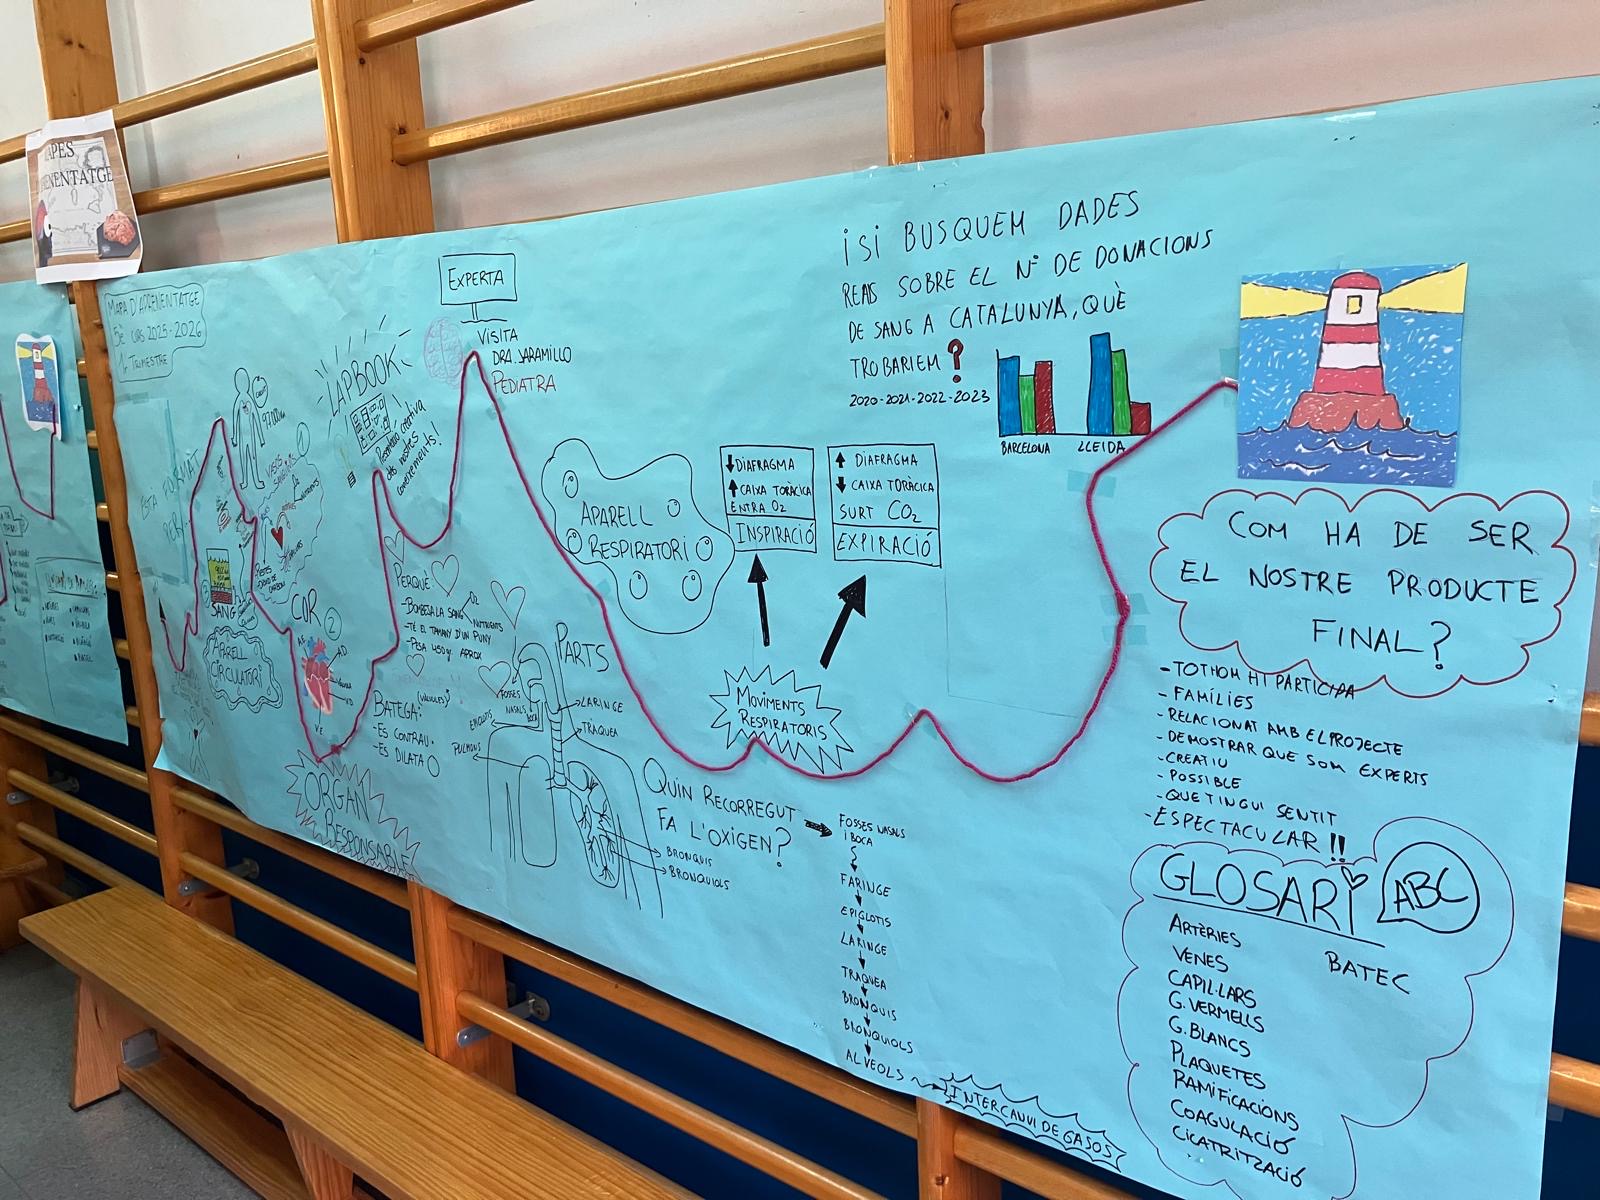 MAPA D'APRENENTATGE
5è CURS 2025-2026
1r TRIMESTRE
ESTÀ FORMAT
PER:
SANG
APARELL
CIRCULATORI
COR
2
ORGAN
RESPONSABLE
LAPBOOK
Presentació creativa
dels nostres
coneixements!
EXPERTA
VISITA
DRA. JARAMILLO
PEDIATRA
PERQUÈ
- BOMBEJA LA SANG
O2
NUTRIENTS
- TÉ EL TAMANY D'UN PUNY
- PESA 450gr. APROX
BATEGA:
(VÀLVULES)
- ES CONTRAU
- ES DILATA
PARTS
FOSSES
NASALS
BOCA
EPIGLOTIS
PULMONS
LARINGE
TRÀQUEA
BRONQUIS
BRONQUIOLS
APARELL
RESPIRATORI
DIAFRAGMA
CAIXA TORÀCICA
ENTRA O2
INSPIRACIÓ
DIAFRAGMA
CAIXA TORÀCICA
SURT CO2
EXPIRACIÓ
MOVIMENTS
RESPIRATORIS
QUIN RECORREGUT
FA L'OXIGEN?
FOSSES NASALS
i BOCA
FARINGE
EPIGLOTIS
LARINGE
TRAQUEA
BRONQUIS
BRONQUIOLS
ALVEOLS
INTERCANVI DE GASOS
i SI BUSQUEM DADES
REALS SOBRE EL Nº DE DONACIONS
DE SANG A CATALUNYA, QUÈ
TROBARIEM?
2020-2021-2022-2023
BARCELONA
LLEIDA
COM HA DE SER
EL NOSTRE PRODUCTE
FINAL?
- TOTHOM HI PARTICIPA
- FAMÍLIES
- RELACIONAT AMB EL PROJECTE
- DEMOSTRAR QUE SOM EXPERTS
- CREATIU
- POSSIBLE
- QUE TINGUI SENTIT
- ESPECTACULAR!!
GLOSARI
ABC
ARTÈRIES
VENES
CAPIL·LARS
G. VERMELLS
G. BLANCS
PLAQUETES
RAMIFICACIONS
COAGULACIÓ
CICATRITZACIÓ
BATEC